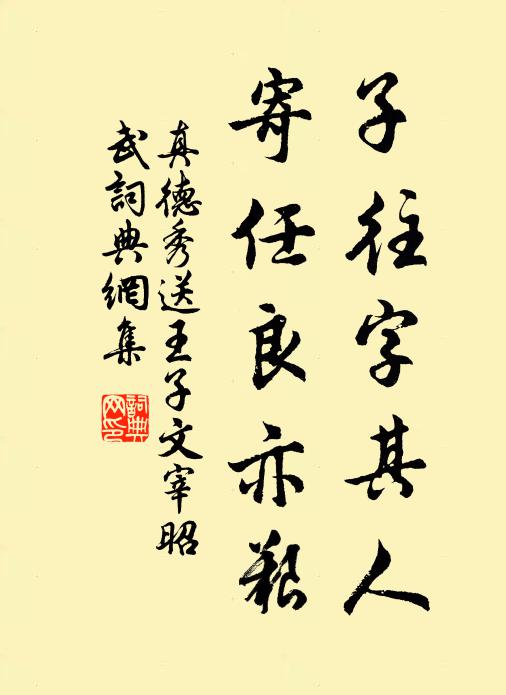 子往字其人
寄任良亦艱
真德秀送王子文宰昭
武詞典網集
詞典
网印